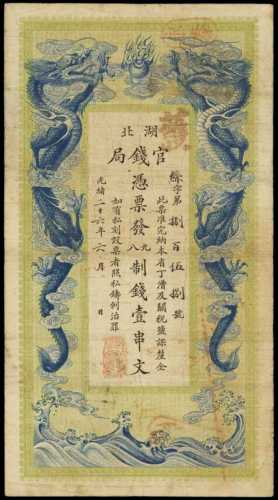 湖北
官錢局
絲字第捌百伍捌號
此票准完納本省丁漕及關稅鹽課釐金
憑票發九八制錢壹串文
如有私刻效票者照私鑄例治罪
光緒二十六年六月 日